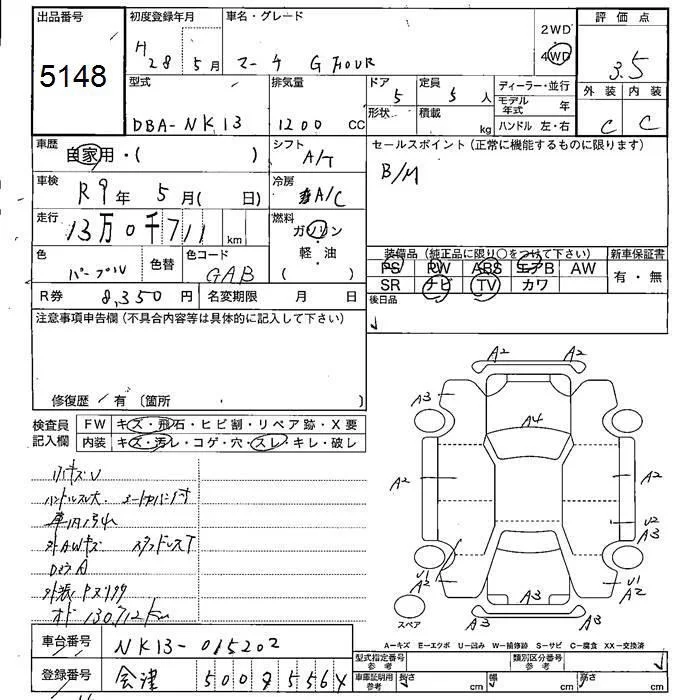 出品番号
5148
初度登録年月
H 28 5月
車名・グレード
マーチ G FOUR
2WD
4WD
評価点
3.5
外装 内装
C C
型式
DBA-NK13
排気量
1200 cc
ドア
5
形状
定員
5 人
積載
kg
ディーラー・並行
モデル年式 年
ハンドル 左・右
車歴
自家用・( )
シフト
A/T
セールスポイント(正常に機能するものに限ります)
B/M
車検
R9年 5月( 日)
冷房
A/C
走行
13万0千711 km
燃料
ガソリン
軽・油
( )
色
パープル
色替
色コード
GAB
装備品(純正品に限り○をつけて下さい)
PS PW ABS エアB AW
SR ナビ TV カワ
新車保証書
有・無
R券 8,350円
名変期限 月 日
後日品
注意事項申告欄(不具合内容等は具体的に記入して下さい)
修復歴/有(箇所 )
検査員記入欄
FW キズ・飛石・ヒビ割・リペア跡・X要
内装 キズ・汚レ・コゲ・穴・スレ・キレ・破レ
ハンドルスレ大
外AWキズ スタッドレスT
オド130,712km
A2 A2
A3
A4
A2 A2
U2
A3
U1
A2
U1
A2
A3
A3 A3
スペア
A-キズ E-エクボ U-凹み W-補修跡 S-サビ C-腐食 XX-交換済
車台番号
NK13-015202
登録番号
会津 500
型式指定番号
参考
類別区分番号
参考
車庫証明用
参考
長さ cm
幅 cm
高さ cm